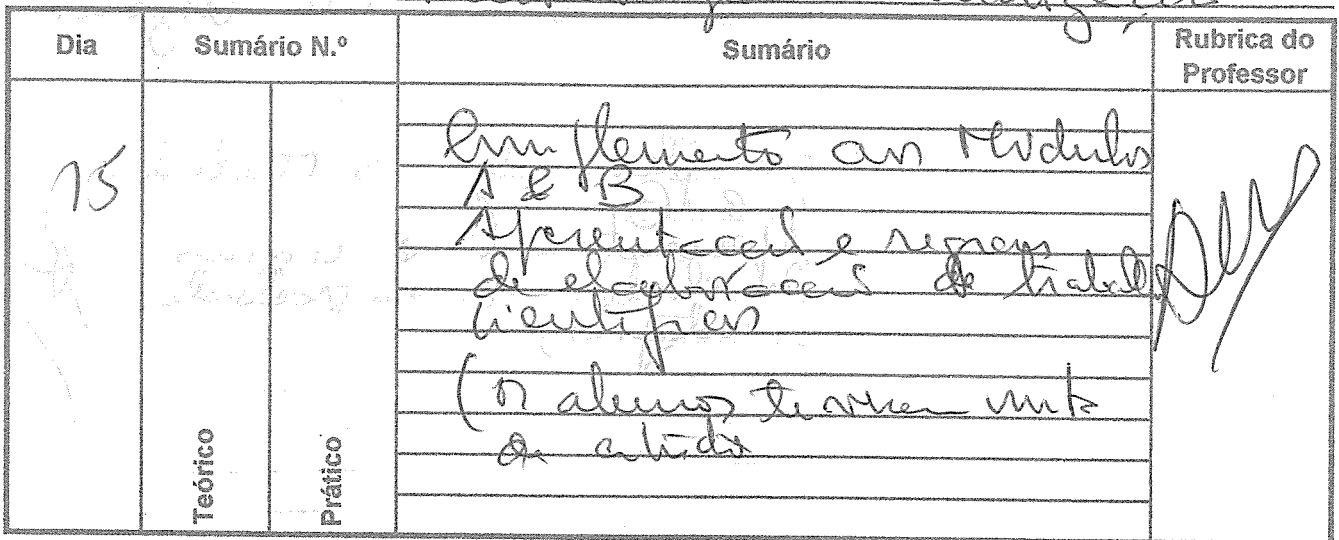 Dia Sumário N.º Sumário Rubrica do Professor
15
Complemento aos Módulos
A & B
Apresentação e regras
de elaboração de trabalhos
científicos
(Os alunos tiveram visita
de
Teórico
Prático